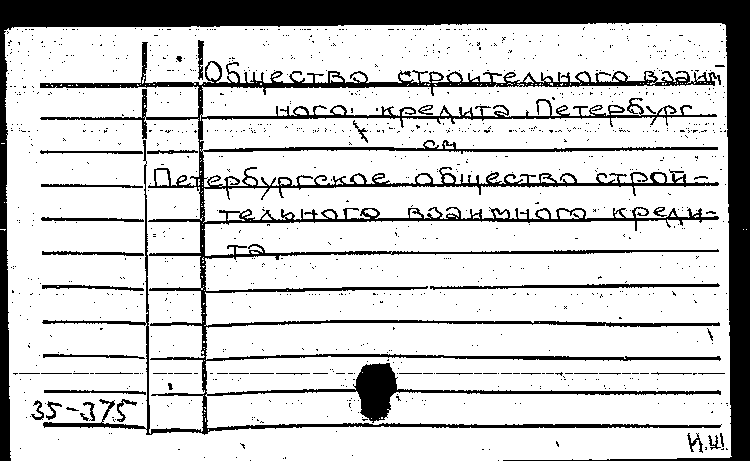 Общество строительного взаим-
ного кредита, Петербург
см.
Петербургское общество строи-
тельного взаимного креди-
та.
35-375
И.Ш.